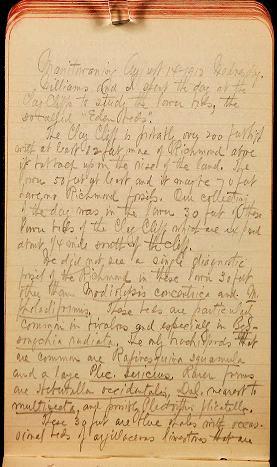 Manitowaning Aug 14 1912 Wednesday.
Williams and I spent the day at the
Clay Cliffs to study the lower beds, the
so called "Eden beds".
The Clay Cliff is probably over 200 feet high
with at least 12 feet more of Richmond above
it but back upon the rise of the land. The
lower 50 feet at least and it may be 70 feet
have no Richmond fossils. Our collecting
of the day was in the lower 30 feet of these
lower beds of the Clay Cliff which are exposed
about 1/4 mile south of the cliff.
We did not see a single diagnostic
fossil of the Richmond in these lower 30 feet
other than Modiolopsis concentrica and M.
pholadiformis. These beds are particularly
common in bivalves and especially in Bys-
sonychia radiata. The only brachiopods that
are common are Rafinesquina squamula
and a large Plec. sericeus. Rarer forms
are Hebertella occidentalis, Dal. nearest to
multisecta, and Plectorthis plicatella.
These 30 feet are blue shales with occas-
ional beds of argillaceous limestones that are